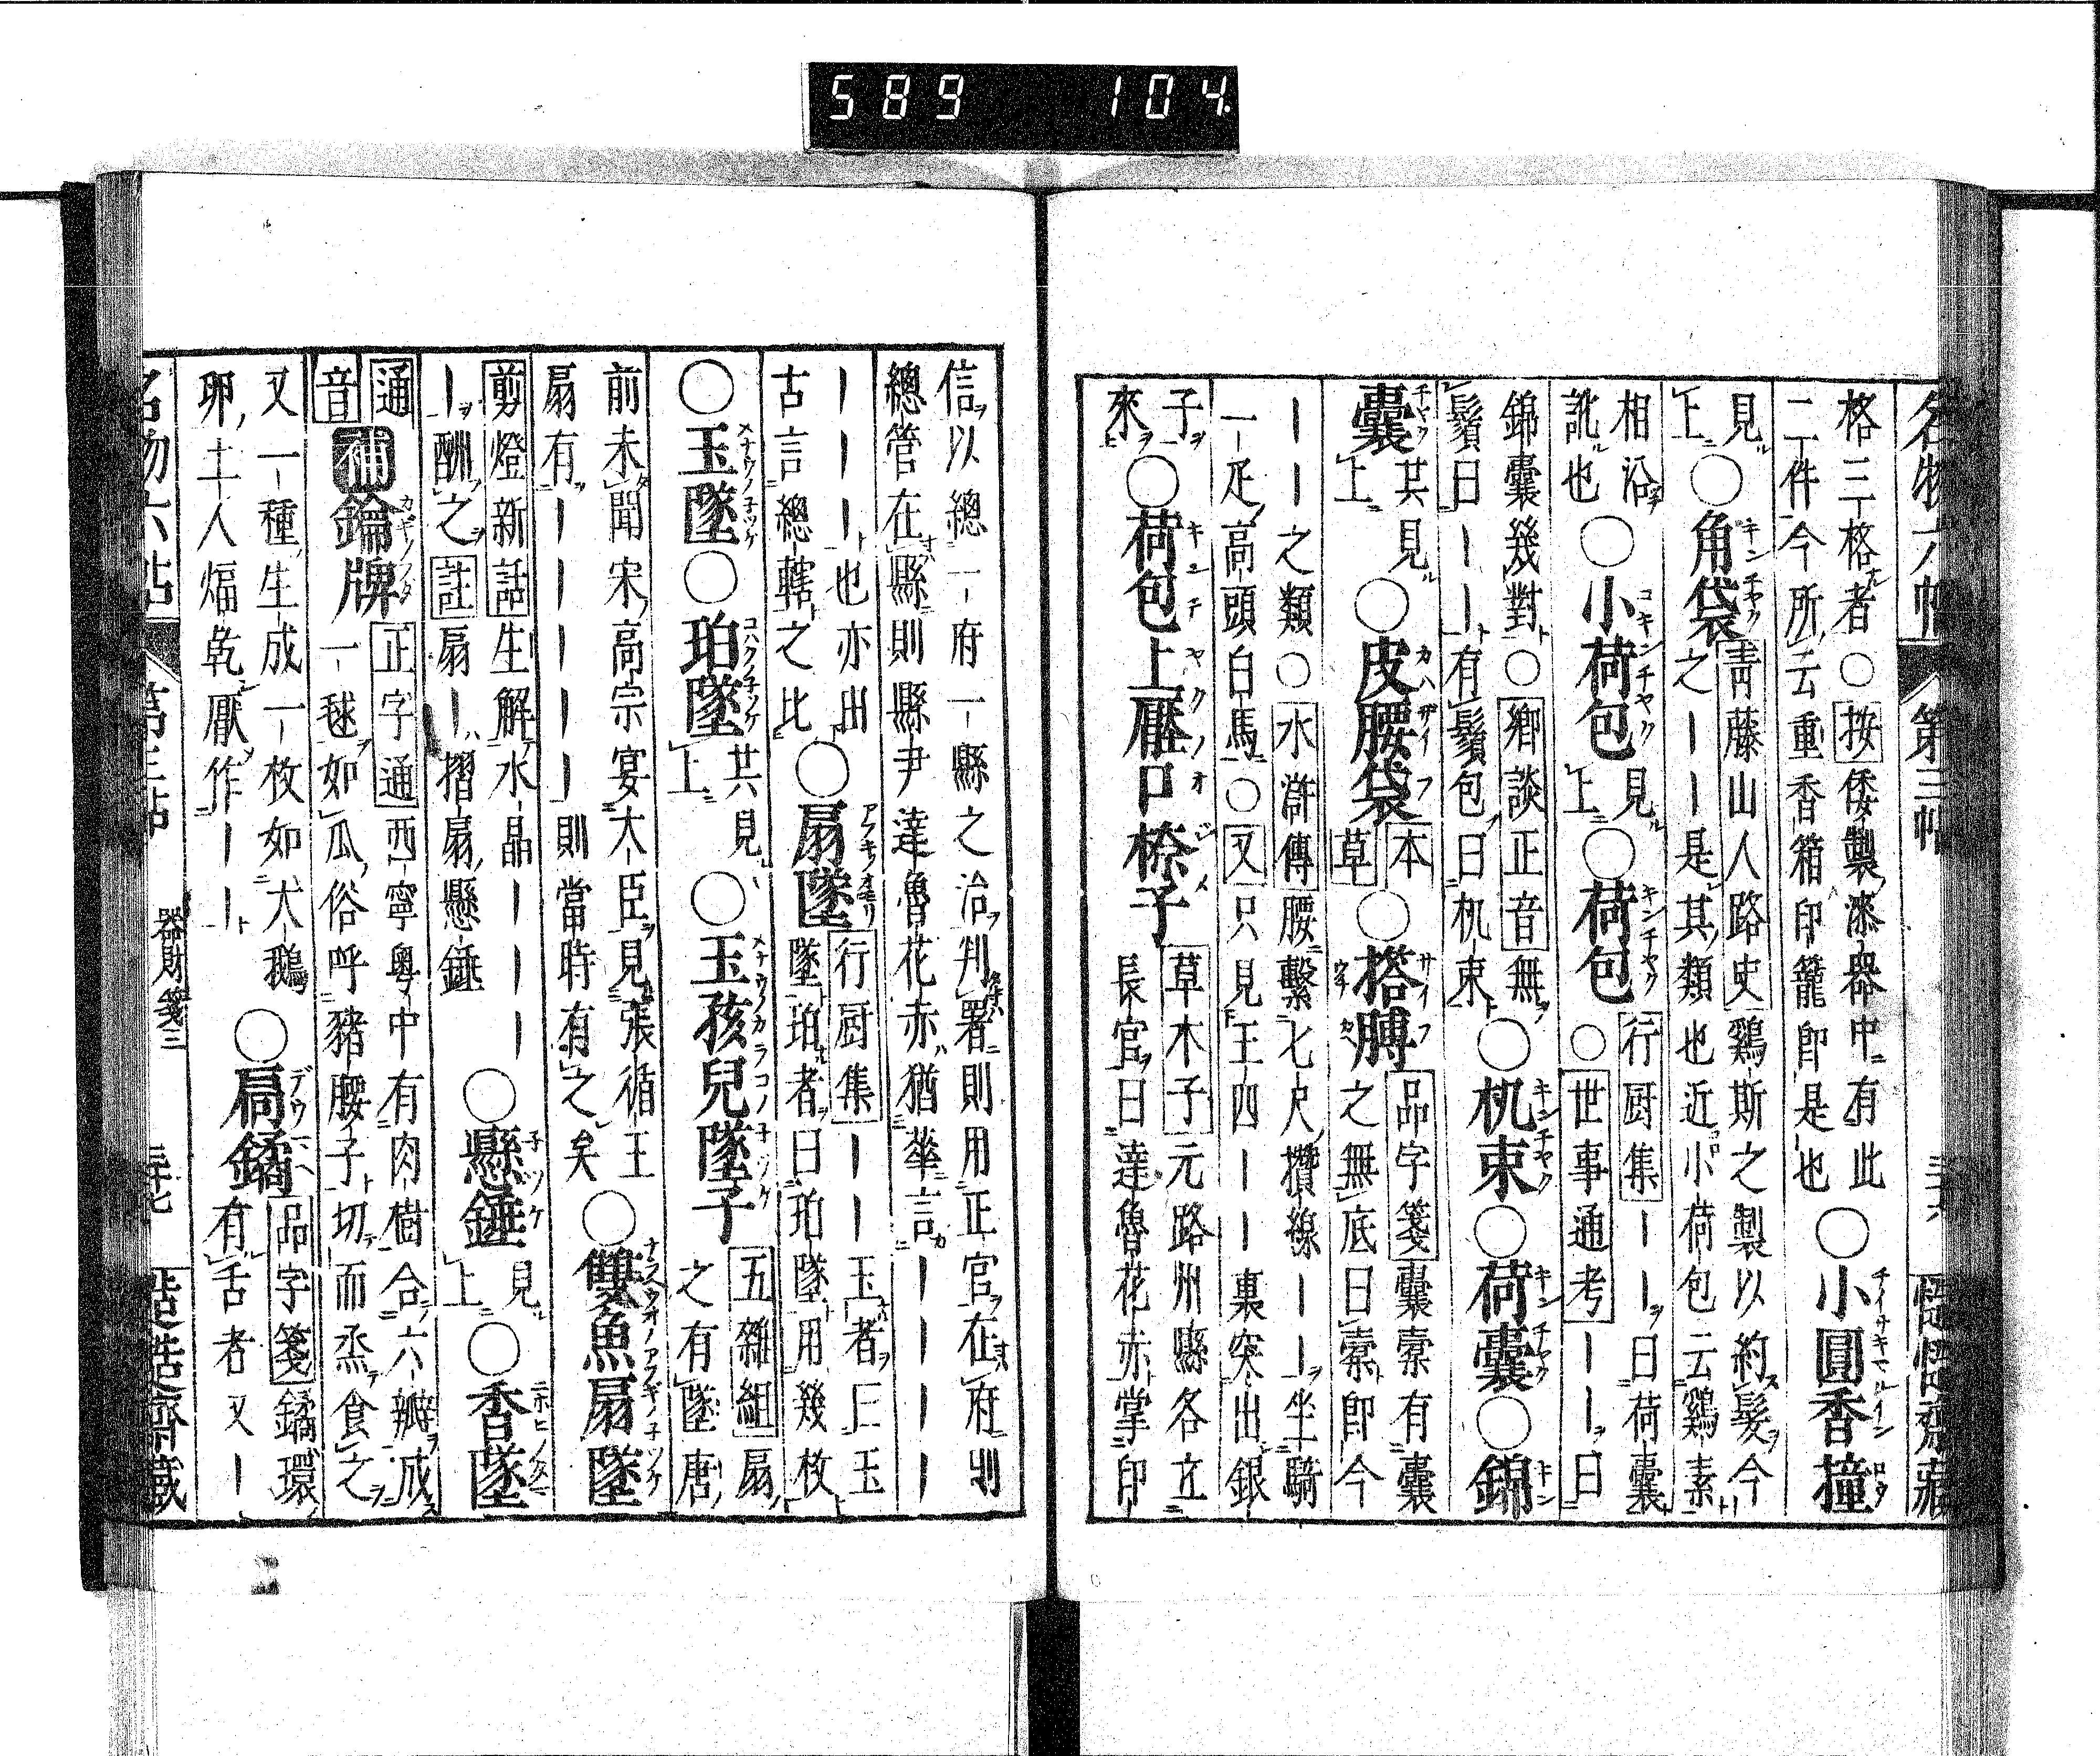 589 104
名物六帖 第三帖
格三格者○按倭製漆器中有此
二件今所云重香箱印籠即是也○小圓香撞
見
上○角袋青藤山人路史鷄斯之製以約髮今
之｜｜是其類也近小荷包云鷄素
相沿
訛也○小荷包見
上○荷包行厨集｜｜曰荷囊
○世事通考｜｜曰
錦囊幾對○鄉談正音無
鬚曰｜｜有鬚包曰机束○机束○荷囊○錦
囊其見
上○皮腰袋本
草○搭膊品字箋囊橐有囊
之無底曰橐即今
｜｜之類○水滸傳腰繫七尺攢線｜｜坐騎
一疋高頭白馬○又只見王四｜｜裏突出銀
子
來○荷包上壓口㯳子草木子元路州縣各立
長官曰達魯花赤掌印
信以總一府一縣之治判署則用正官在府判
總管在縣則縣尹達魯花赤猶華言｜｜｜｜
｜｜｜也亦出
古言總轄之比○扇墜行厨集｜｜玉者曰玉
墜珀者曰珀墜用幾枚
○玉墜○珀墜共見
上○玉孩兒墜子五雜組扇
之有墜唐
前未聞宋高宗宴大臣見張循王
扇有｜｜｜｜｜則當時有之矣○雙魚扇墜
剪燈新話生解水晶｜｜｜
｜酬之註扇｜摺扇懸錘○懸錘見
上○香墜
通
音補鑰牌正字通西寧粤中有肉樹合六瓣成
一毬如瓜俗呼豬腰子切而烝食之
又一種生成一枚如大鵝
卵土人煏乾厭作｜｜○扃鐍品字箋鐍環
有舌者又｜
名物六帖 第三帖 器財箋三